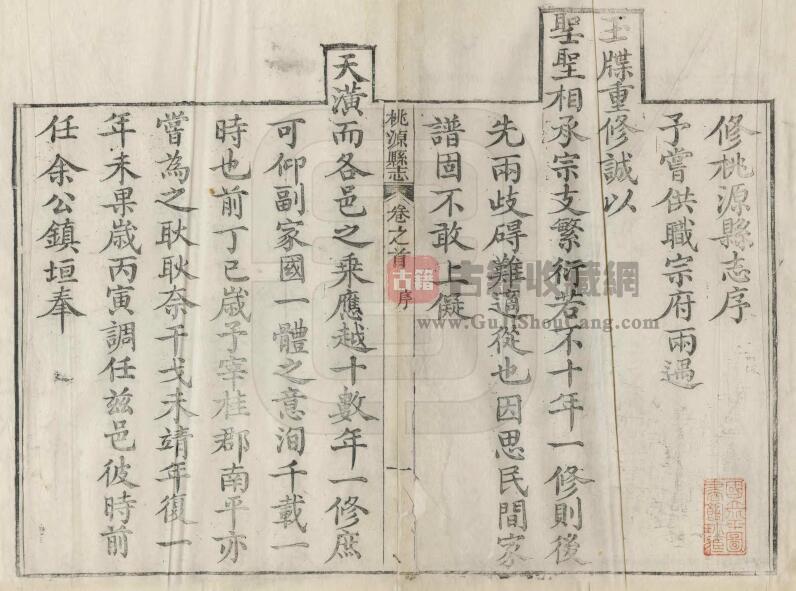 修桃源縣志序
予嘗供職宗府兩遇
玉牒重修誠以
聖聖相承宗支繁衍若不十年一修則後
先兩歧碍難適從也因思民間家
譜固不敢上儗
桃源縣志 卷之首 序 一
天潢而各邑之乗應越十數年一修庶
可仰副家國一體之意洵千載一
時也前丁巳歲予宰桂郡南平亦
嘗為之耿耿奈干戈未靖年復一
年未果歲丙寅調任兹邑彼時前
任余公鎮垣奉
古籍
古籍收藏網
www.GujiShouCang.com